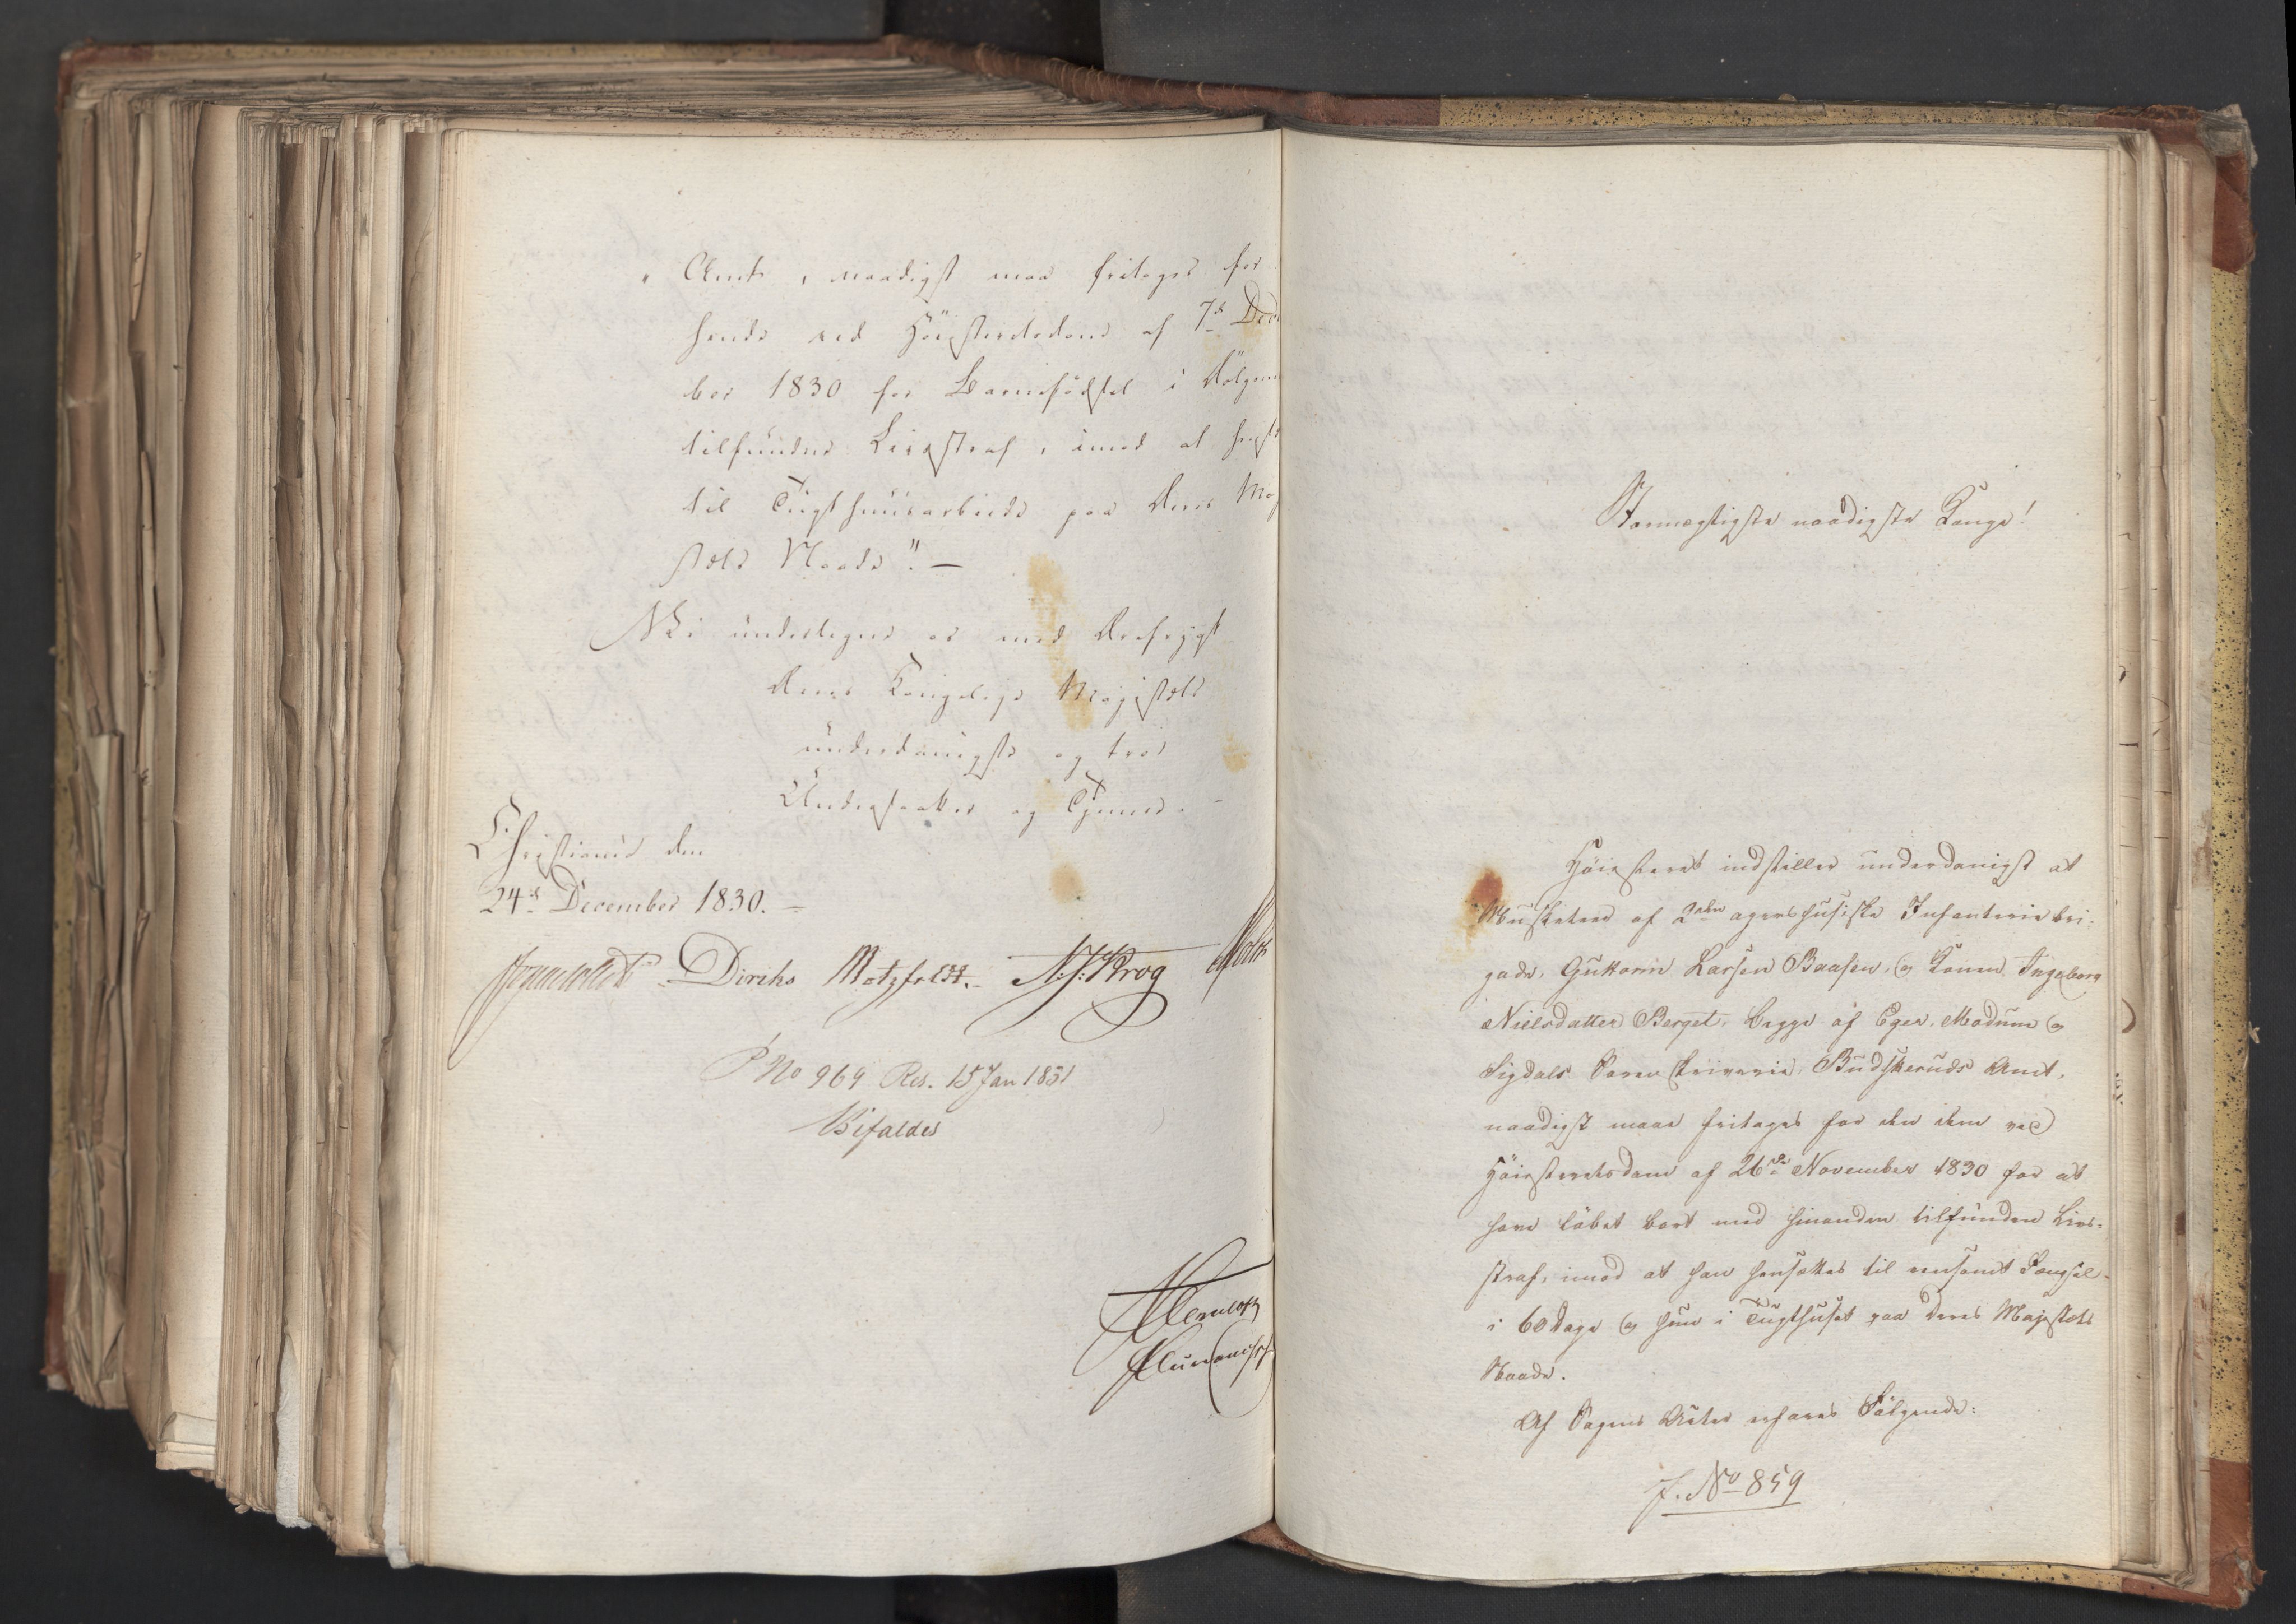 „ Amt, naadigst maa fritages for
hende ved Höiesteretsdom af 7de Decem
ber 1830 for Barnefödsel i Dölgsm
tilfundne Livsstraf, imod at hensæ
til Tugthuusarbeide paa Deres Maj
stæts Naade". —
Vi undertegne os med Ærefrygt
Deres Kongelige Majestæts
underdanigste og troe
Undersaatter og Tjenere. -
Christiania den
24de December 1830. -
Diriks Motzfeldt. N. J. Krog
P No 969 Res. 15 Jan 1831
Bifaldes
Stormægtigste naadigste Konge!
Höiesteret indstiller underdanigst at
Musketeer af 2den agershusiske Infanteriebri-
gade, Guttorm Larsen Baasen, og Konen Ingeborg
Nielsdatter Berget, begge af Eger, Modum og
Sigdals Sorenskriverie, Budskeruds Amt,
naadigst maae fritages for den dem ved
Höiesteretsdom af 26de November 1830 for at
have löbet bort med hinanden tilfundne Livs-
straf, imod at han hensættes til eensomt Fængsel
i 60 Dage og hun i Tugthuset paa Deres Majestæts
Naade.
Af Sagens Acter erfares Fölgende:
J. No 859